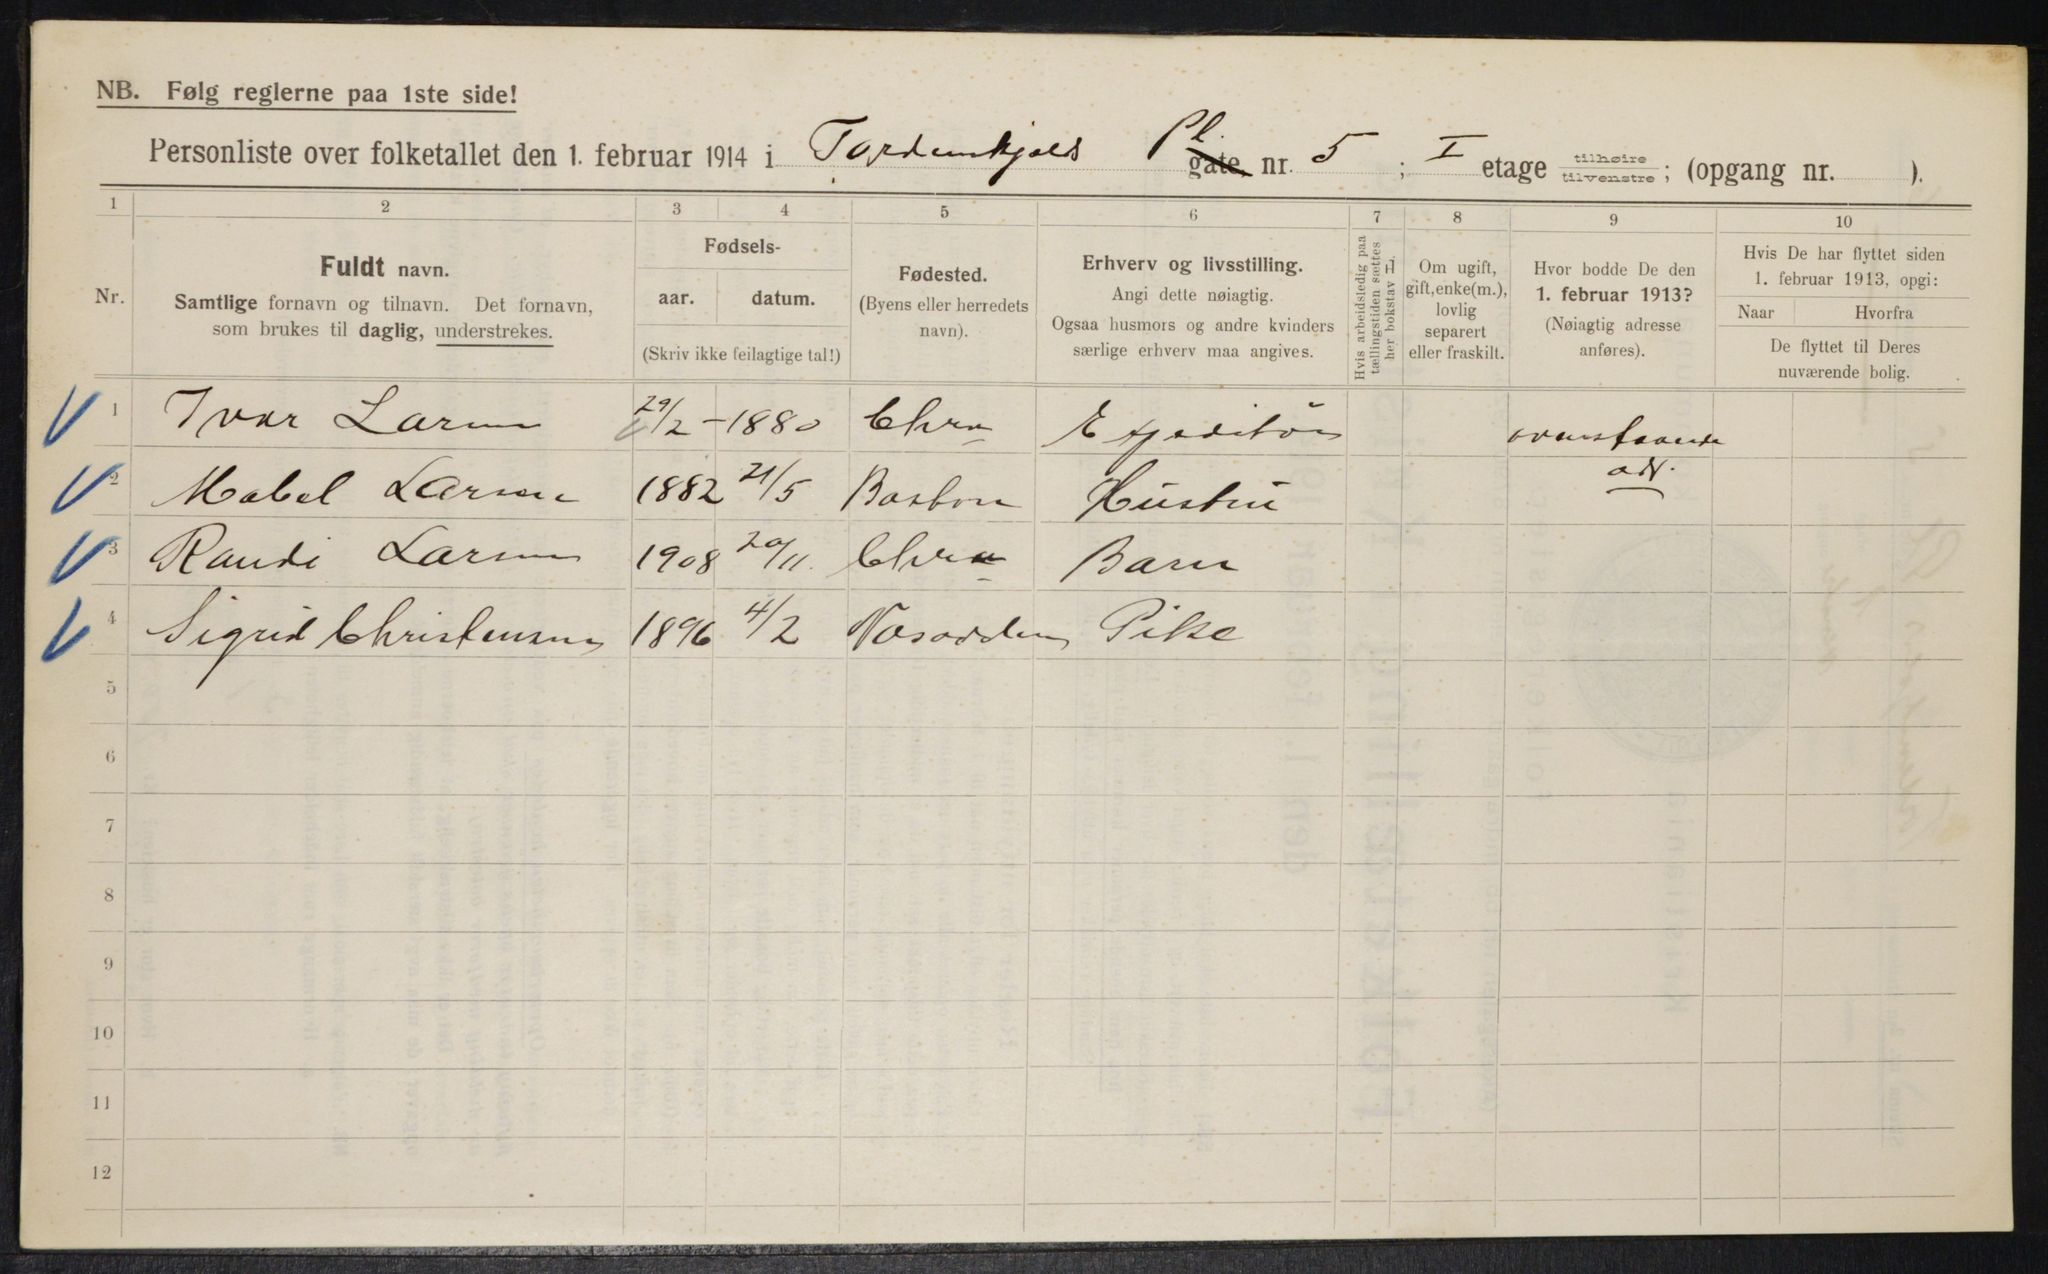 NB. Følg reglerne paa 1ste side!
Personliste over folketallet den 1. februar 1914 i Tordenskjolds Pl. gate, nr. 5 ; I etage tilhøire tilvenstre ; (opgang nr. ).
1 2 3 4 5 6 7 8 9 10
Nr.
Fuldt navn.
Samtlige fornavn og tilnavn. Det fornavn,
som brukes til daglig, understrekes.
Fødsels-
aar. datum.
(Skriv ikke feilagtige tal!)
Fødested.
(Byens eller herredets
navn).
Erhverv og livsstilling.
Angi dette nøiagtig.
Ogsaa husmors og andre kvinders
særlige erhverv maa angives.
Hvis arbeidsledig paa
tællingstiden sættes
her bokstav L.
Om ugift,
gift, enke(m.),
lovlig
separert
eller fraskilt.
Hvor bodde De den
1. februar 1913?
(Nøiagtig adresse
anføres).
Hvis De har flyttet siden
1. februar 1913, opgi:
Naar Hvorfra
De flyttet til Deres
nuværende bolig.
1 Ivar Larsen 29/2 - 1880 Chra Expeditør ovenstaaende
adr.
2 Mabel Larsen 1882 21/5 Boston Hustru
3 Randi Larsen 1908 20/11. Chra Barn
4 Sigrid Christensen 1896 4/2 Næsodden Pike
5
6
7
8
9
10
11
12